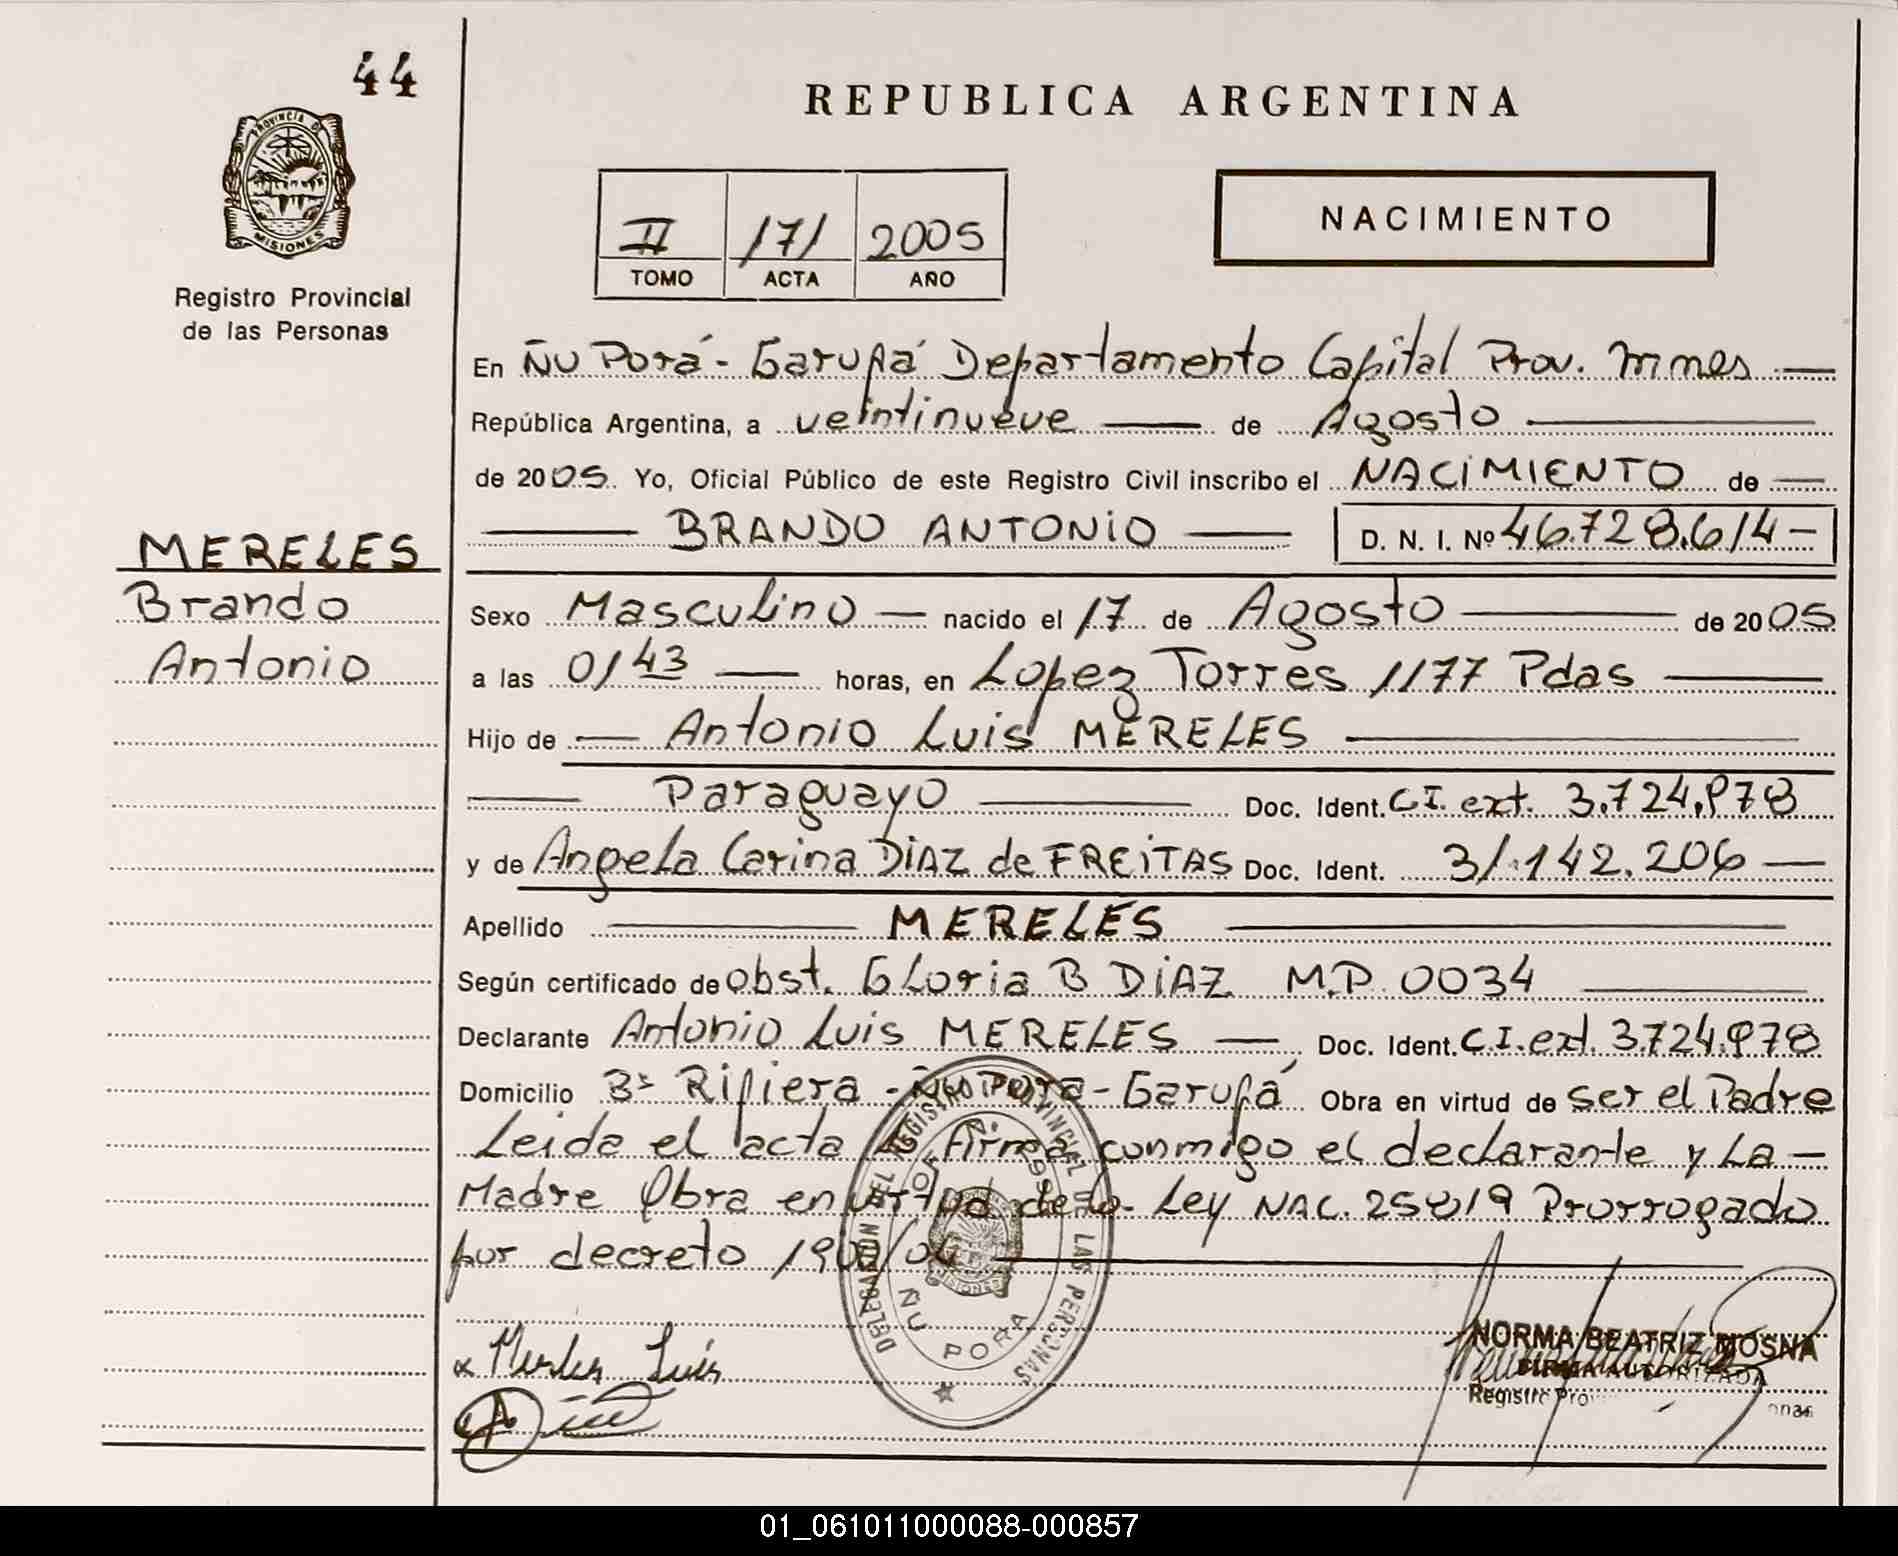 44
PROVINCIA DE
MISIONES
Registro Provincial
de las Personas
MERELES
Brando
Antonio
REPUBLICA ARGENTINA
II 171 2005
TOMO ACTA AÑO
NACIMIENTO
En Ñu Porá - Garupá Departamento Capital Prov. Mnes
República Argentina, a veintinueve de Agosto
de 2005. Yo, Oficial Público de este Registro Civil inscribo el NACIMIENTO de
BRANDO ANTONIO D. N. I. Nº 46.728.614-
Sexo Masculino nacido el 17 de Agosto de 2005
a las 01 43 horas, en Lopez Torres 1177 Pdas
Hijo de Antonio Luis MERELES
Paraguayo Doc. Ident. C.I. ext. 3.724.978
y de Angela Carina DIAZ de FREITAS Doc. Ident. 31.142.206
Apellido MERELES
Según certificado de obst. Gloria B DIAZ M.P. 0034
Declarante Antonio Luis MERELES, Doc. Ident. C.I. ext. 3.724.978
Domicilio Bº Ripiera - Ñu Porá - Garupá Obra en virtud de ser el Padre
Leida el acta la firma conmigo el declarante y La
Madre Obra en virtud de la Ley NAC. 25819 Prorrogado
por decreto
DELEGACION DEL REGISTRO PROVINCIAL DE LAS PERSONAS
ÑU PORA
MISIONES
Luis
NORMA BEATRIZ MOSNA
FIRMA AUTORIZADA
01_061011000088-000857